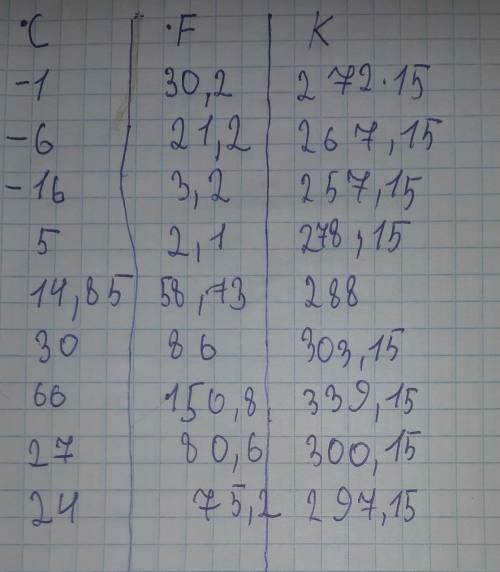 °C °F K
-1 30,2 272.15
-6 21,2 267,15
-16 3,2 257,15
5 2,1 278,15
14,85 58,73 288
30 86 303,15
66 150,8 339,15
27 80,6 300,15
24 75,2 297,15